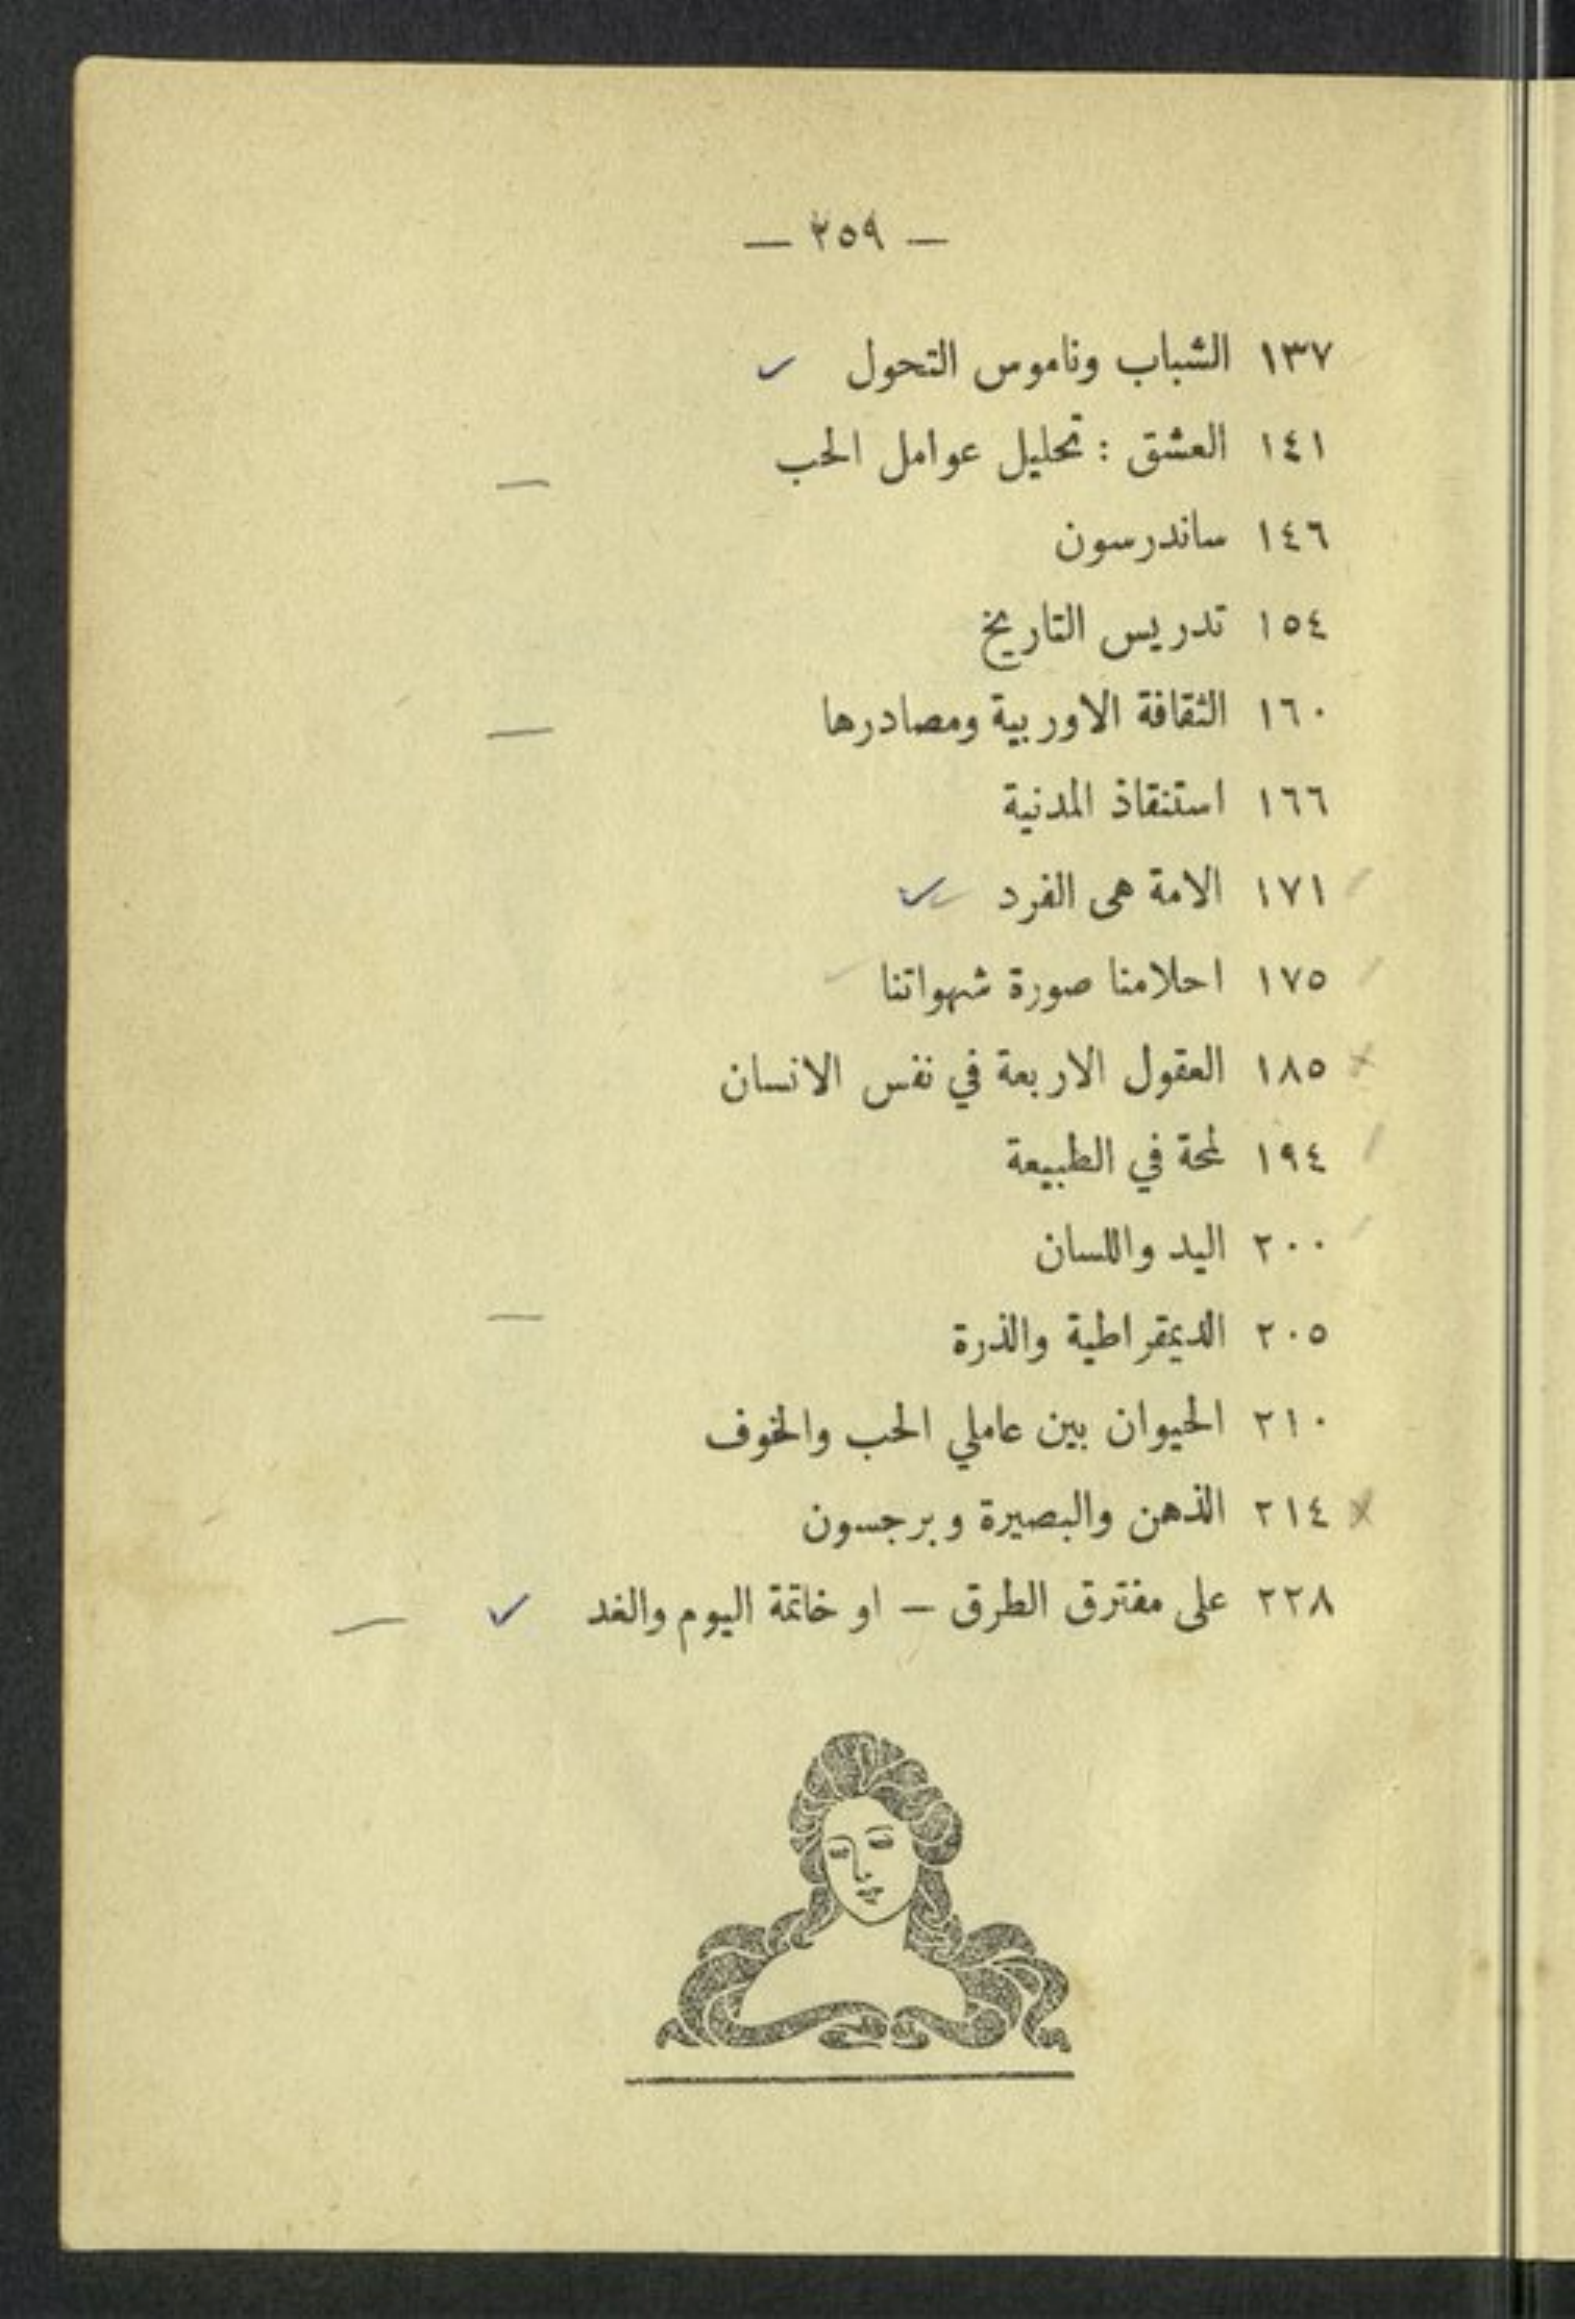 — ٢٥٩ —
١٣٧ الشباب وناموس التحول
١٤١ العشق : تحليل عوامل الحب
١٤٦ ساندرسون
١٥٤ تدريس التاريخ
١٦٠ الثقافة الاوربية ومصادرها
١٦٦ استنقاذ المدنية
١٧١ الامة هى الفرد
١٧٥ احلامنا صورة شهواتنا
١٨٥ العقول الاربعة في نفس الانسان
١٩٤ لمحة في الطبيعة
٢٠٠ اليد واللسان
٢٠٥ الديمقراطية والذرة
٢١٠ الحيوان بين عاملي الحب والخوف
٢١٤ الذهن والبصيرة وبرجسون
٢٢٨ على مفترق الطرق — او خاتمة اليوم والغد